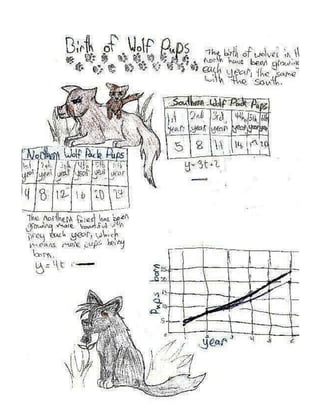 Birth of Wolf Pups
The birth of wolves in th
north have been growing
each year, the same
with the South.
Southern Wolf Pack Pups
1st 2nd 3rd 4th 5th 6th
year year year year year year
5 8 11 14 17 20
y=3t+2
Northern Wolf Pack Pups
1st 2nd 3rd 4th 5th 6th
year year year year year year
4 8 12 16 20 24
The northern forest has been
growing more bountiful with
prey each year, which
means more pups being
born.
y=4t
Pups born
year